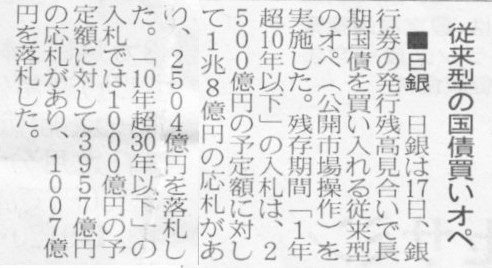 従来型の国債買いオペ
■日銀 日銀は17日、銀
行券の発行残高見合いで長
期国債を買い入れる従来型
のオペ（公開市場操作）を
実施した。残存期間「1年
超10年以下」の入札は、2
500億円の予定額に対し
て1兆8億円の応札があ
り、2504億円を落札し
た。「10年超30年以下」の
入札では1000億円の予
定額に対して3957億円
の応札があり、1007億
円を落札した。